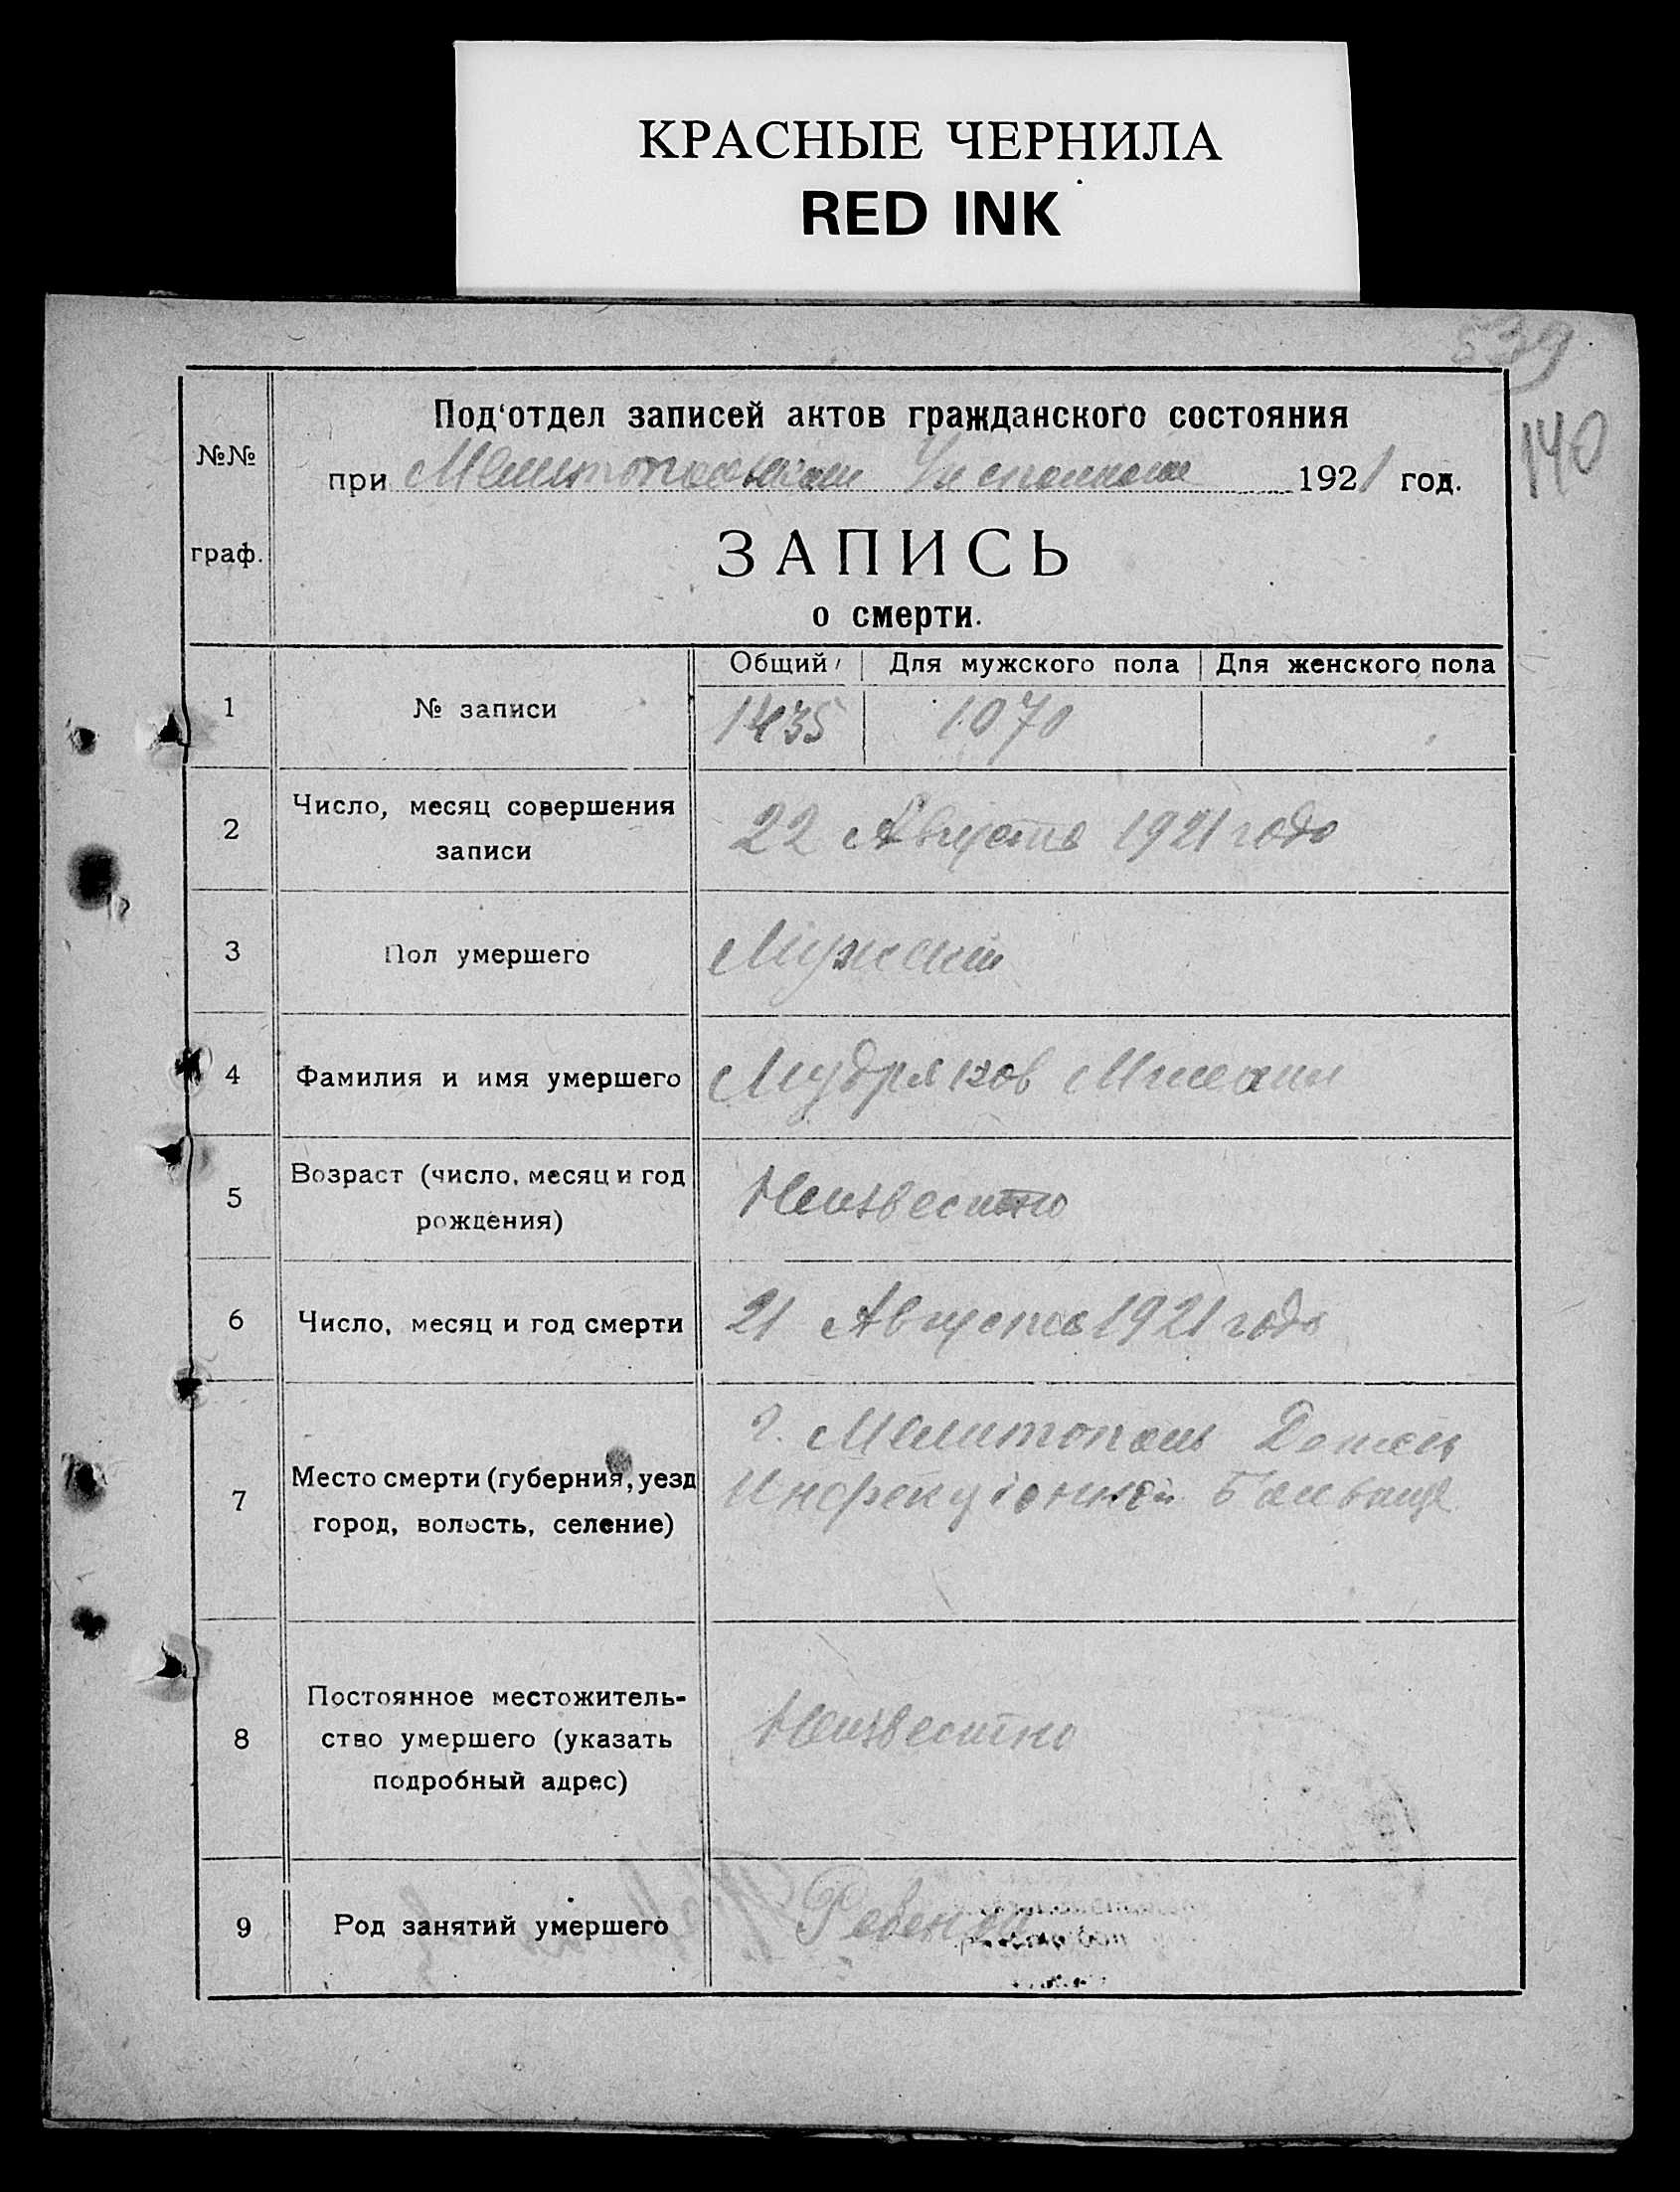 КРАСНЫЕ ЧЕРНИЛА
RED INK
539
140
Под'отдел записей актов гражданского состояния
№№
при Мелитопольском Исполкоме 1921 год.
граф.
ЗАПИСЬ
о смерти.
Общий Для мужского пола Для женского пола
1 № записи 1435 1070
2 Число, месяц совершения
записи 22 Августа 1921 года
3 Пол умершего Мужской
4 Фамилия и имя умершего Мудряков
5 Возраст (число, месяц и год
рождения) Неизвестно
6 Число, месяц и год смерти 21 Августа 1921 года
г. Мелитополь
7 Место смерти (губерния, уезд Инфекціонной Больнице
город, волость, селение)
Постоянное местожитель-
8 ство умершего (указать Неизвестно
подробный адрес)
9 Род занятий умершего Ребенок